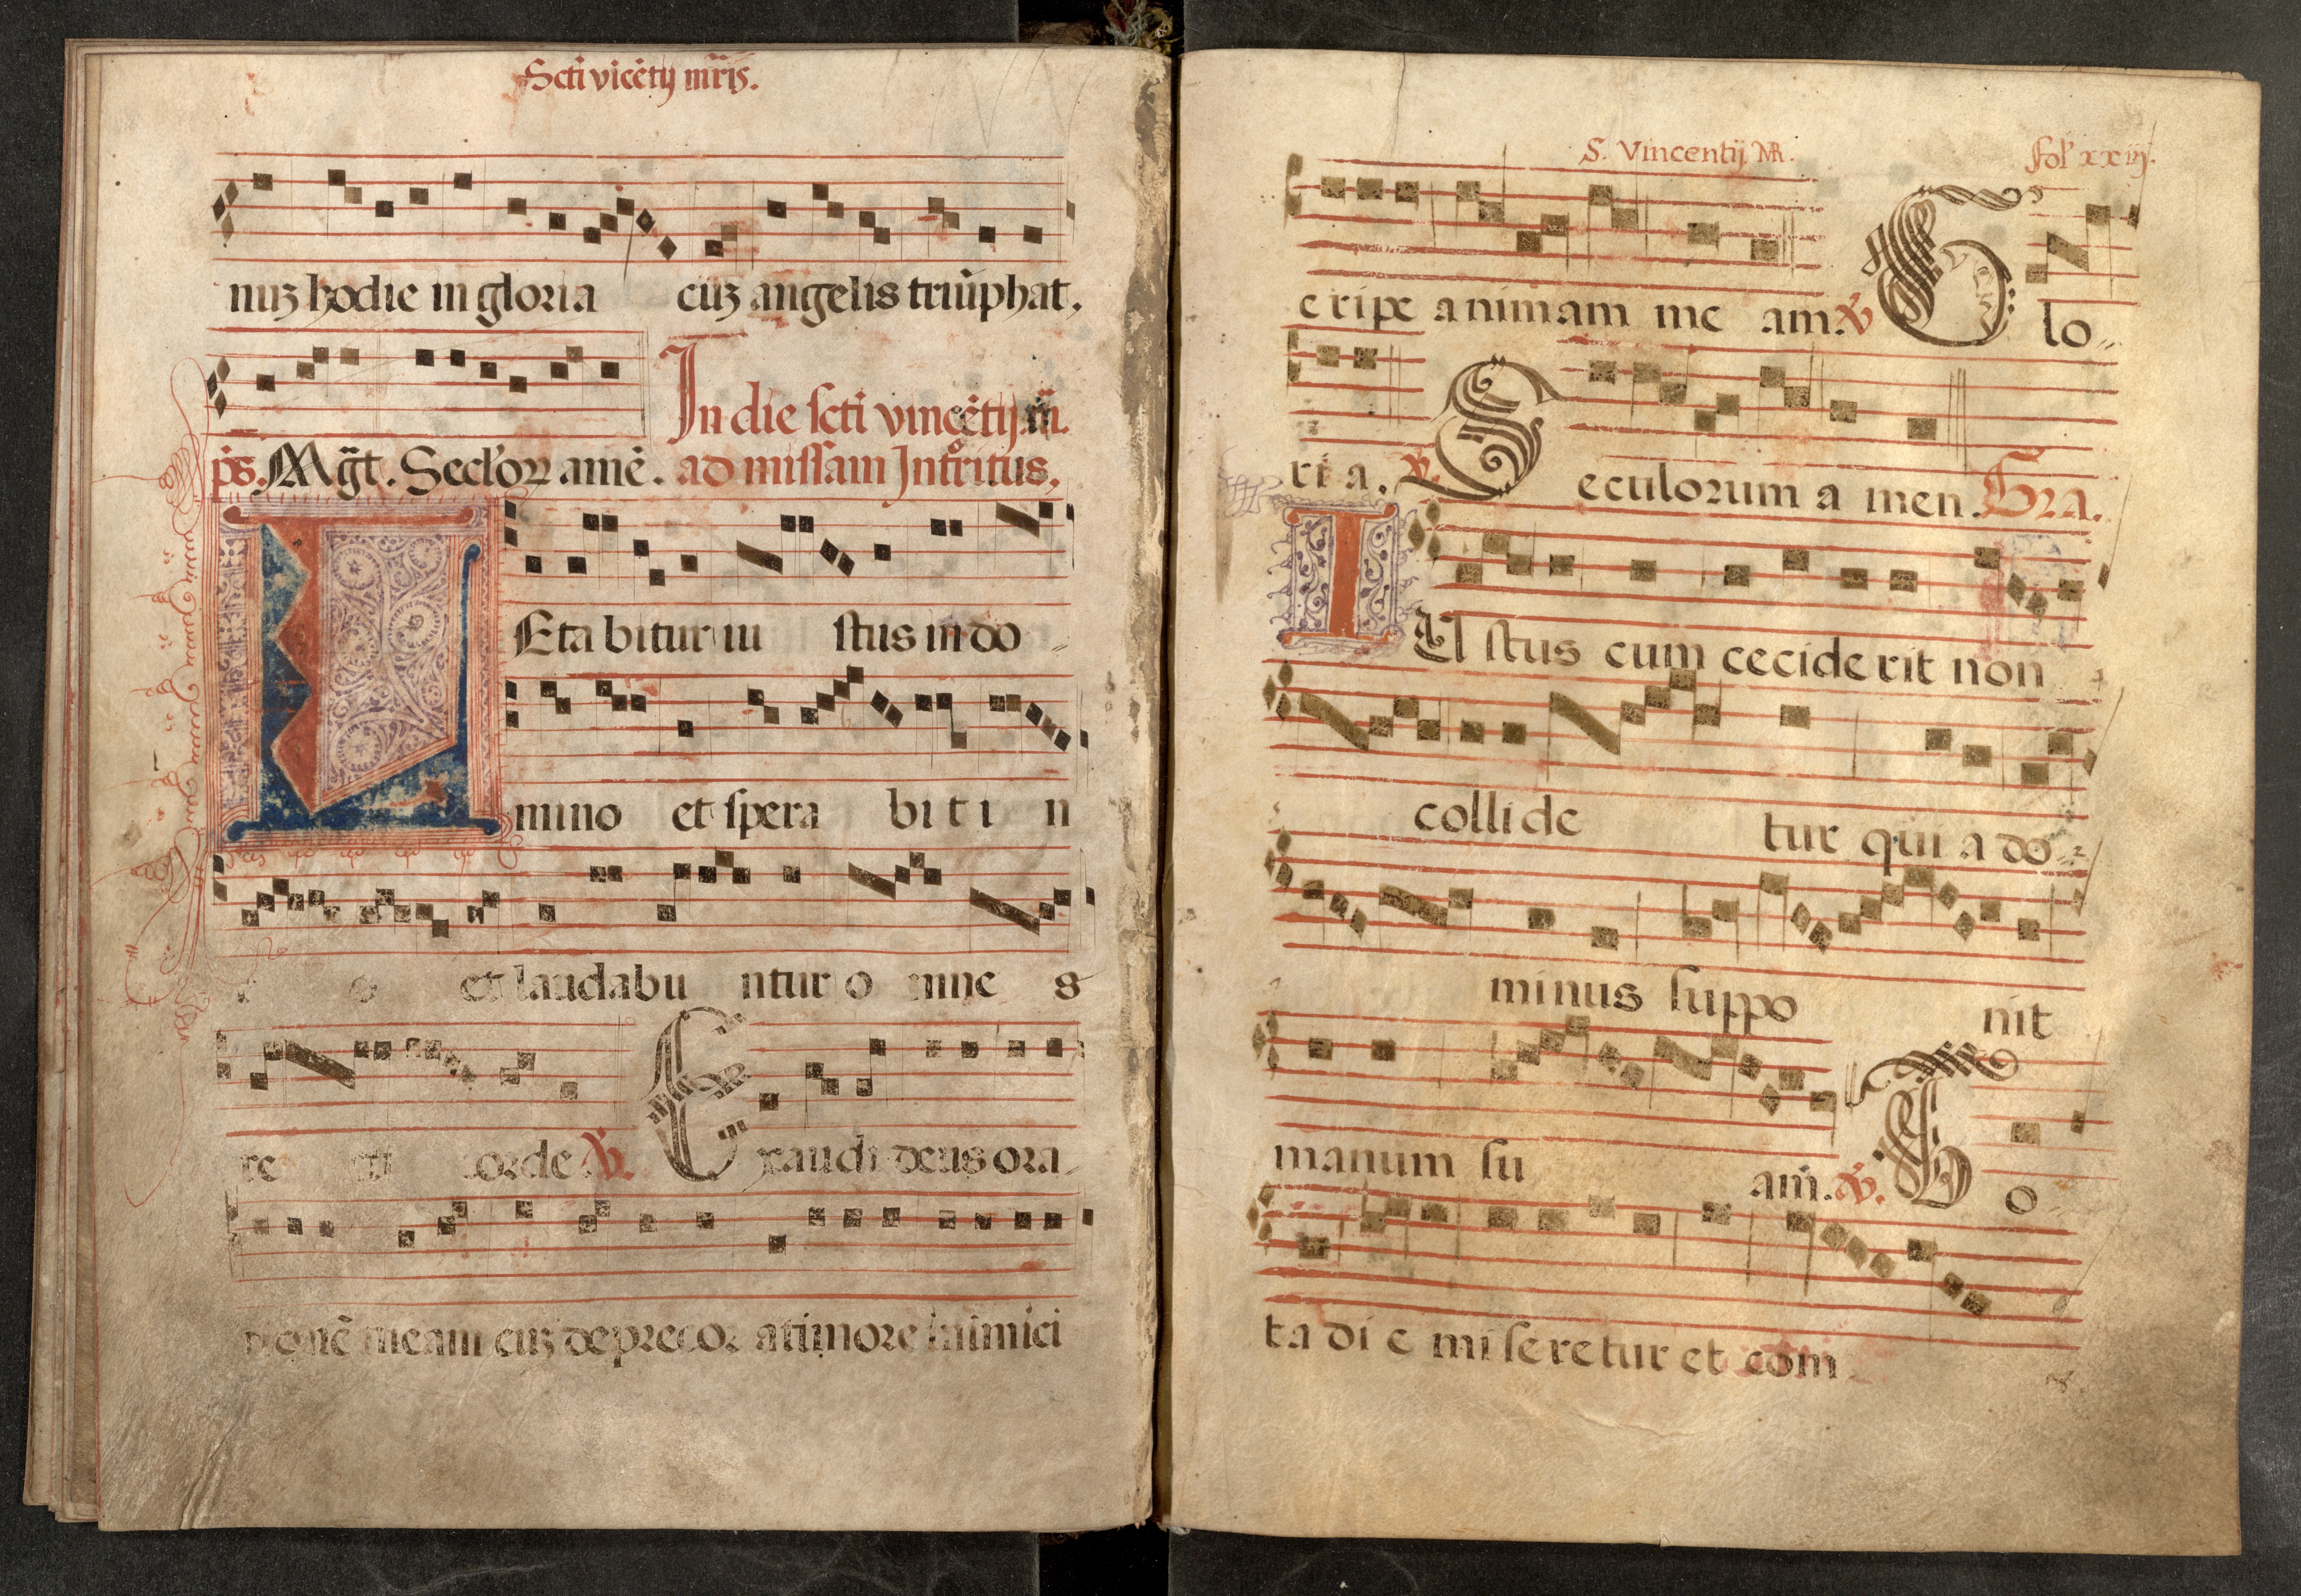 Scti vicẽtij mr̃is.
nuʒ hodie in gloria cũʒ angelis triũphat,
In die scti vincẽtij m̃.
p̃s. Mg̃t. Seclorꝝ amẽ. ad missam Introitus,
L Eta bitur iu stus in do -
mino et spera bi t i n
e o et laudabu ntur o mne s
re cti corde ℣. Exaudi deus ora
tionẽ meam cuʒ deprecor a timore inimici
S. Vincentij MR. Fol xxiij.
eripe animam me am. ℣ Glo-
ri a. ℟. Seculorum a men. Gra.
I Ustus cum ceciderit non
collide tur qui a do-
minus suppo nit
manum su am̃. ℣. To-
ta di e miseretur et com